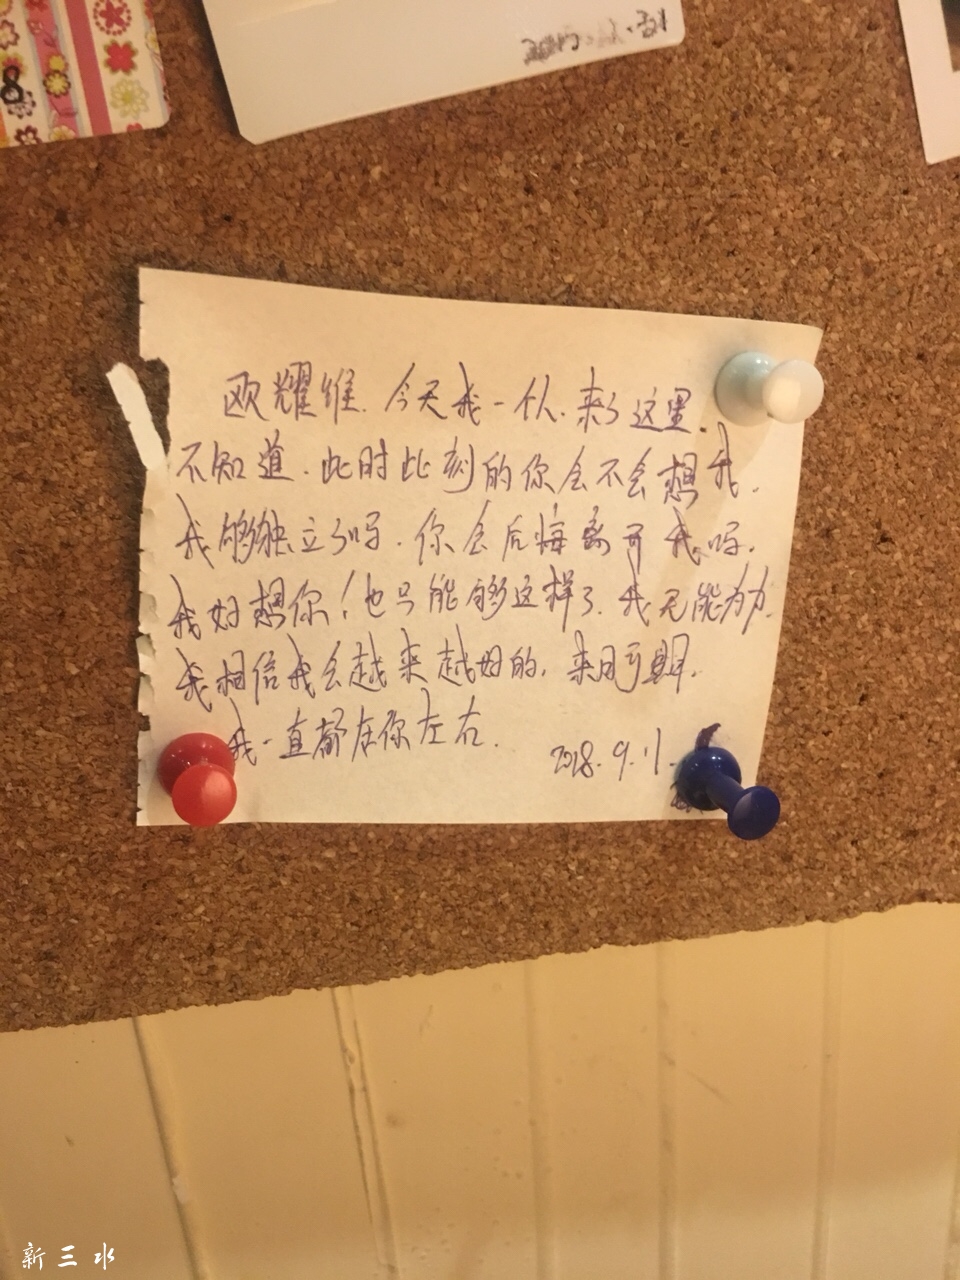 8
欧耀维.今天我一个人.来了这里.
不知道.此时此刻的你会不会想我.
我够独立了吗.你会后悔离开我吗.
我好想你!也只能够这样了.我无能为力.
我相信我会越来越好的.来日可期.
我一直都在你左右.
2018.9.11.
新三水